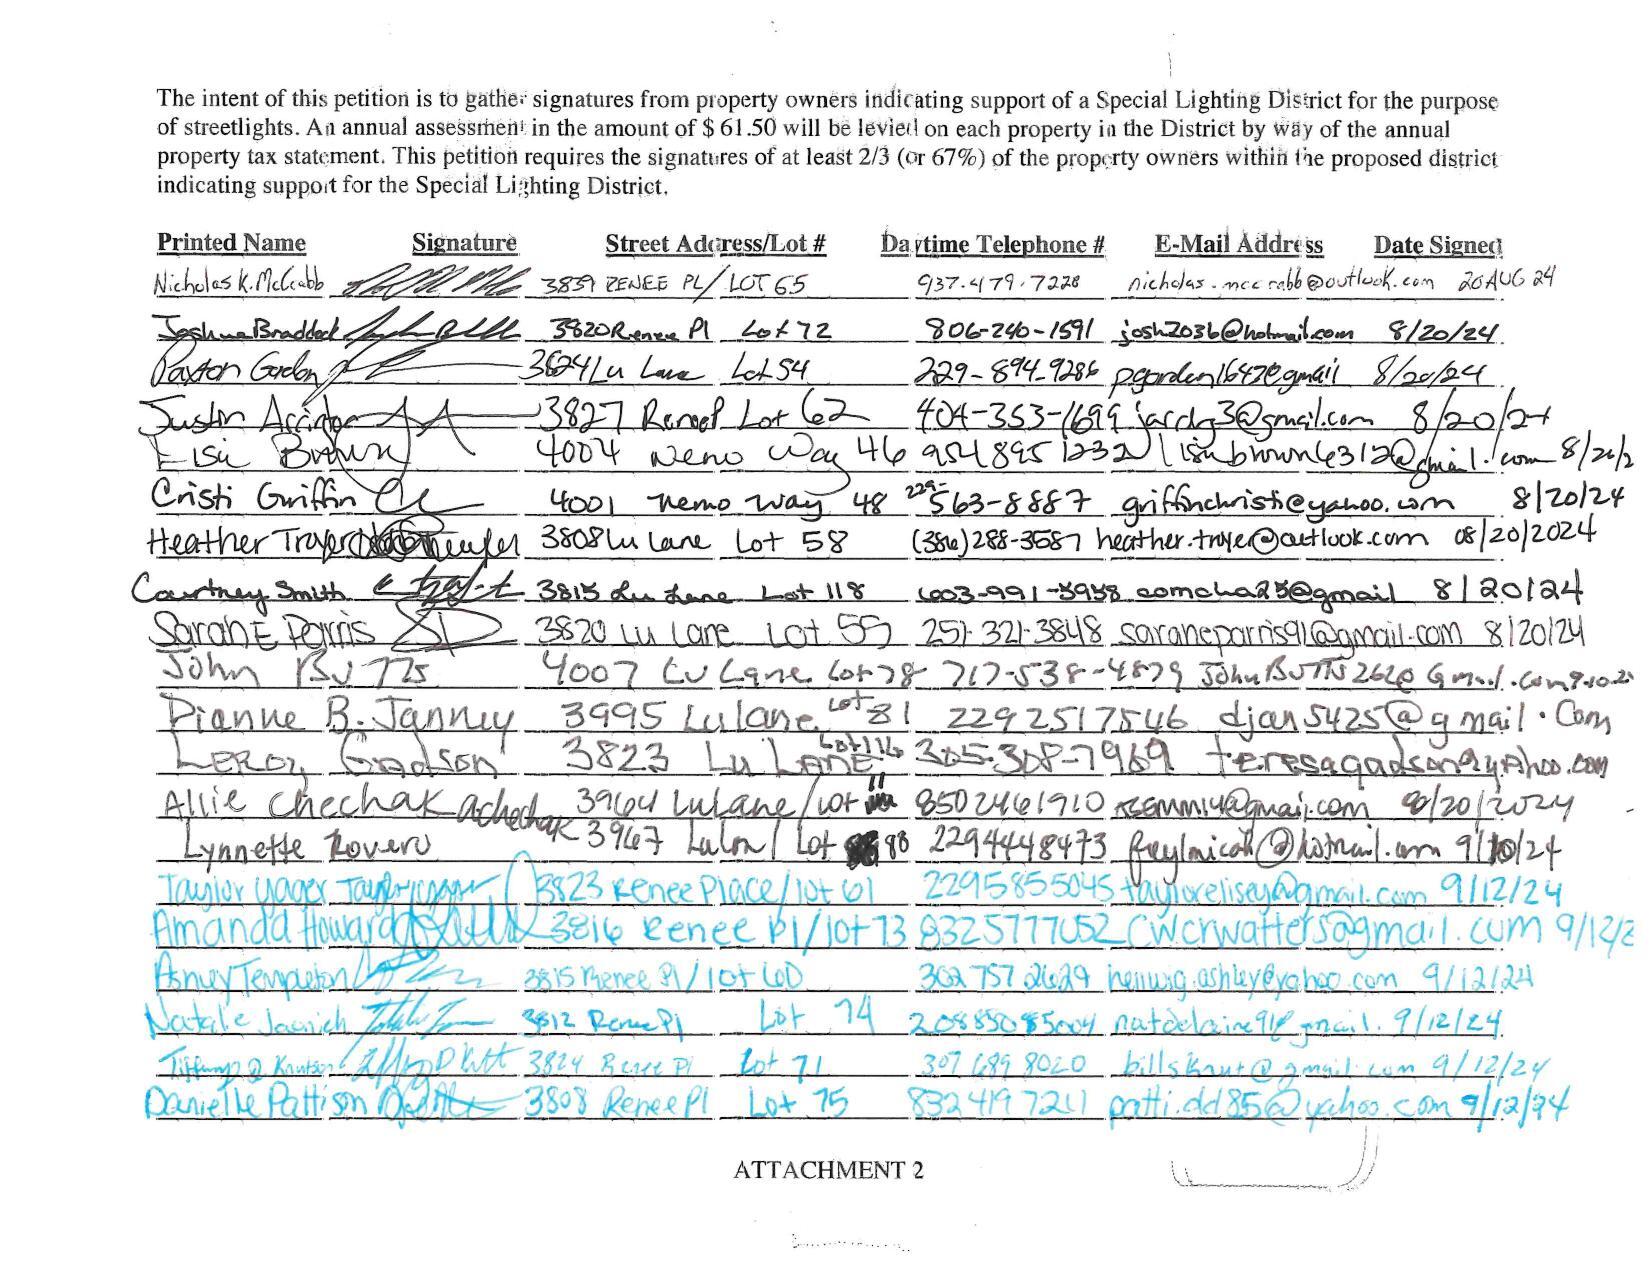 The intent of this petition is to gather signatures from property owners indicating support of a Special Lighting District for the purpose
of streetlights. An annual assessment in the amount of $ 61.50 will be levied on each property in the District by way of the annual
property tax statement. This petition requires the signatures of at least 2/3 (or 67%) of the property owners within the proposed district
indicating support for the Special Lighting District.
Printed Name Signature Street Address/Lot # Daytime Telephone # E-Mail Address Date Signed
Nicholas K. McCrabb 3839 RENEE PL/ LOT 65 937.479.7228 nicholas.mccrabb@outlook.com 20 AUG 24
Joshua Braddock 3820 Renee Pl Lot 72 806-240-1591 josh2036@hotmail.com 8/20/24
Paxton Gordon 3824 Lu Lane Lot 54 229-894-9286 8/20/24
Justin 3827 Lot 62 404-353-1699 8/20/24
Elsie Brown 4004 Nemo Way 46 954 895 1232
Cristi Griffin 4001 Nemo Way 48 229-563-8887 griffinchristi@yahoo.com 8/20/24
Heather Troyer 3808 Lu Lane Lot 58 (386) 288-3587 heather.troyer@outlook.com 08/20/2024
Courtney Smith 3815 Lu Lane Lot 118 comcha25@gmail 8/20/24
Sarah E Parris 3820 Lu Lane Lot 55 251-321-3848 saraneparris91@gmail.com 8/20/24
John Butts 4007 Lu Lane Lot 78 717-538-4879
Dianne B. Janney 3995 Lu lane Lot 81 2292517546 djan5425@gmail.com
LEROY Gadson 3823 Lu LANE Lot 116 305-308-7969
Allie Chechak achechak 3964 Lu lane/lot 11 8502461910
Lynnette Rovero 3967 Lot 88 2294448473
Taylor Yager 3823 Renee Place/lot 61 2295855045 taylorelisey@gmail.com 9/12/24
Amanda Howard 3816 Renee Pl/lot 73 8325777052 cwcrwatters@gmail.com
Templeton 3815 Renee Pl/lot 60 302 757 2629 9/12/24
Natalie 3812 Renee Pl Lot 74 9/12/24
3824 Renee Pl Lot 71 307 689 8020 billsknut@gmail.com 9/12/24
Danielle Pattison 3808 Renee Pl Lot 75 832 419 7211 patti.dd85@yahoo.com 9/12/24
ATTACHMENT 2